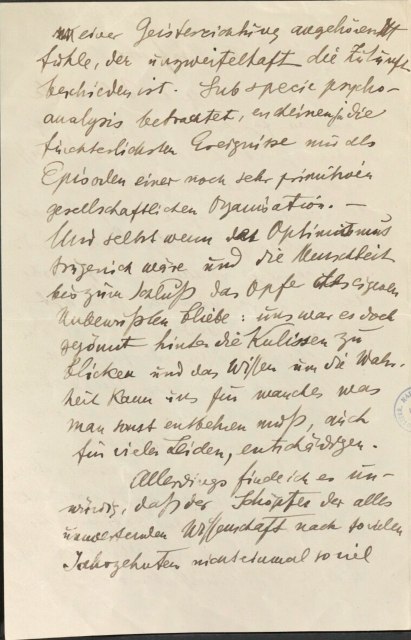 einer Geistesrichtung angehörend
fühle, der unzweifelhaft die Zukunft
beschieden ist. Sub specie psycho-
analysis betrachtet, erscheinen ja die
fürchterlichsten Ereignisse nur als
Episoden einer noch sehr primitiven
gesellschaftlichen Organisation. —
Und selbst wenn der Optimismus
trügerisch wäre und die Menschheit
bis zum Schluß das Opfer ihres eigenen
Unbewußten bliebe: uns war es doch
gegönnt hinter die Kulissen zu
blicken und das Wissen um die Wahr-
heit kann uns für manches was
man sonst entbehren muß, auch
für vieles Leiden, entschädigen.
Allerdings finde ich es un-
würdig, daß der Schöpfer der alles
umwertenden Wissenschaft nach so vielen
Jahrzehnten nicht einmal so viel